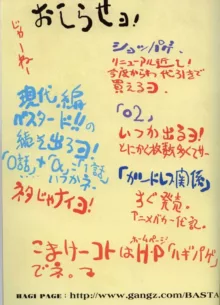 おしらせヨ!
じゃーねー
ショッパゲ.
リニューアル近し!
今度からわ代引きで
買えるヨ.
現代編
バスタード!!の
編を出るヨ!
「0話」+α、
いつかネ.
ネタじゃナイヨ!
「02」
いつか出るヨ!
とにかく枚数多くてサー
「ガードレス関係」
すぐ発売.
アニメガカー伝記.
こまけーコトはH・P「ハギパゲ」
ホームページ
でネ。
HAGI PAGE : http://www.gangz.com/BASTA